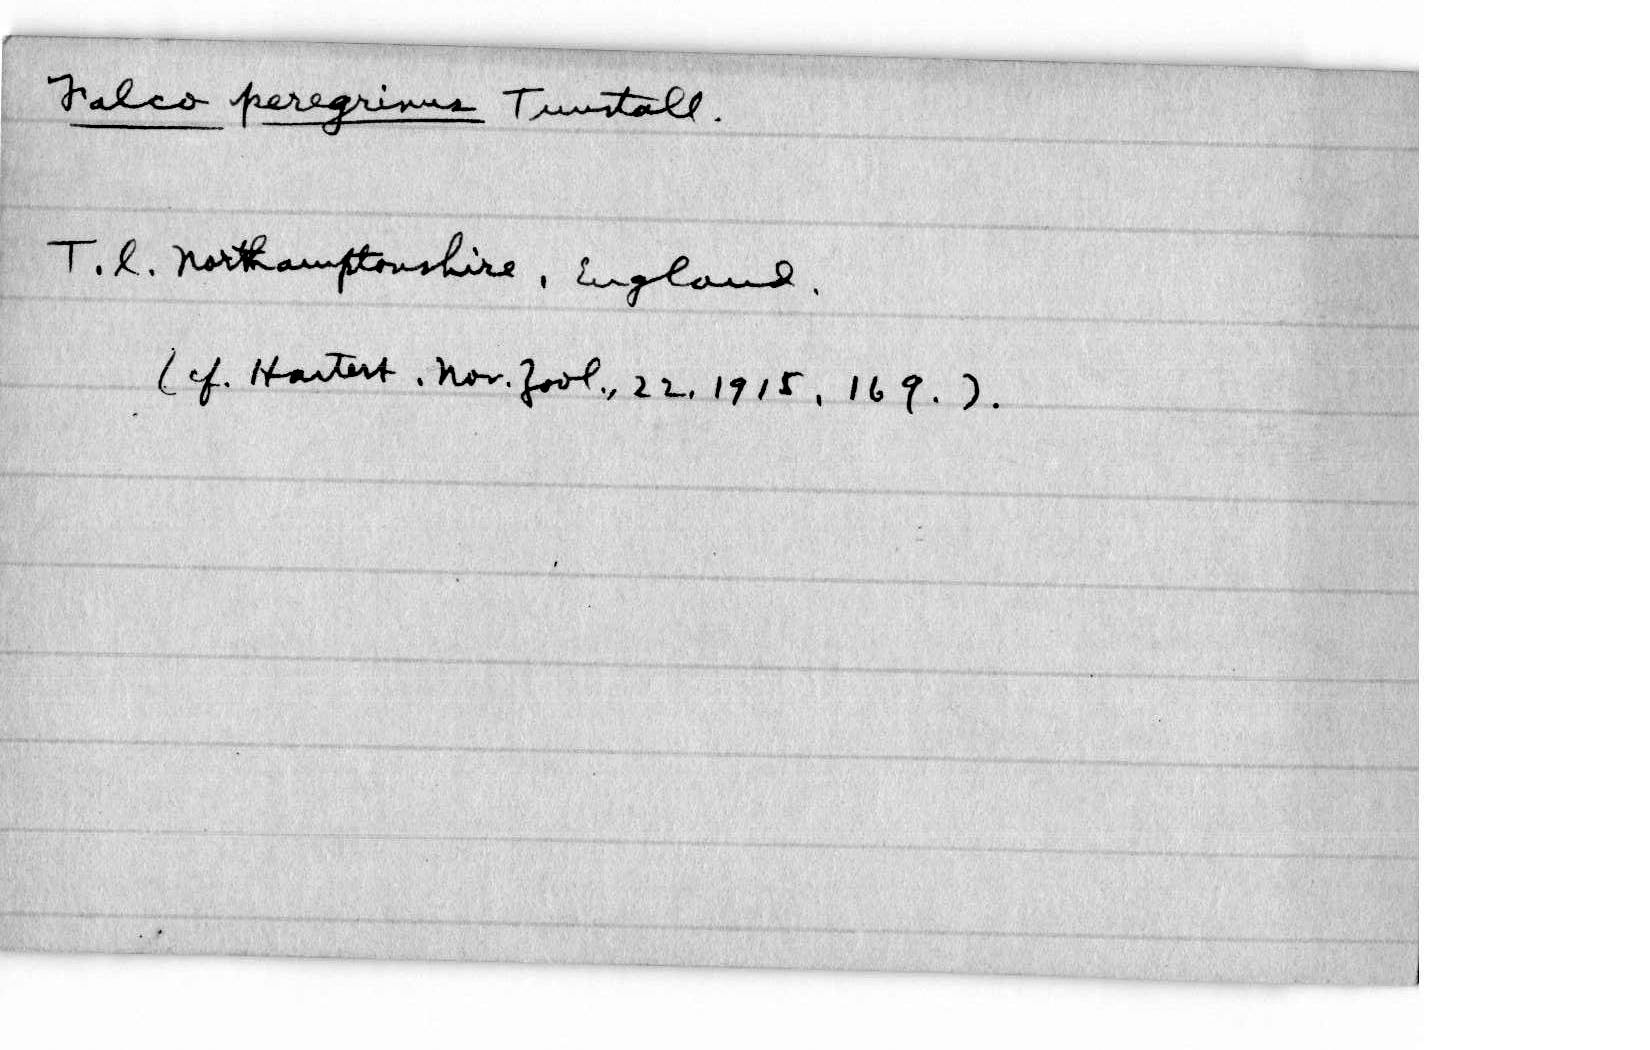 Falco peregrinus Tunstall.
T.l. Northamptonshire, England.
(cf. Hartert, Nov. Zool., 22, 1915, 169.).